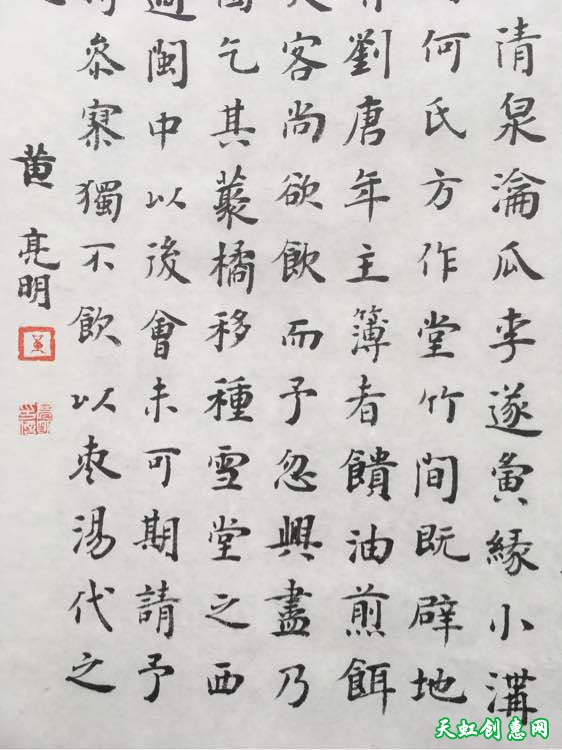 清泉瀹瓜李遂夤緣小溝
何氏方作堂竹間既辟地
劉唐年主簿者饋油煎餌
客尚欲飲而予忽興盡乃
乞其藂橘移種雪堂之西
適閩中以後會未可期請予
叅寥獨不飲以棗湯代之
黄亮明
天虹创意网